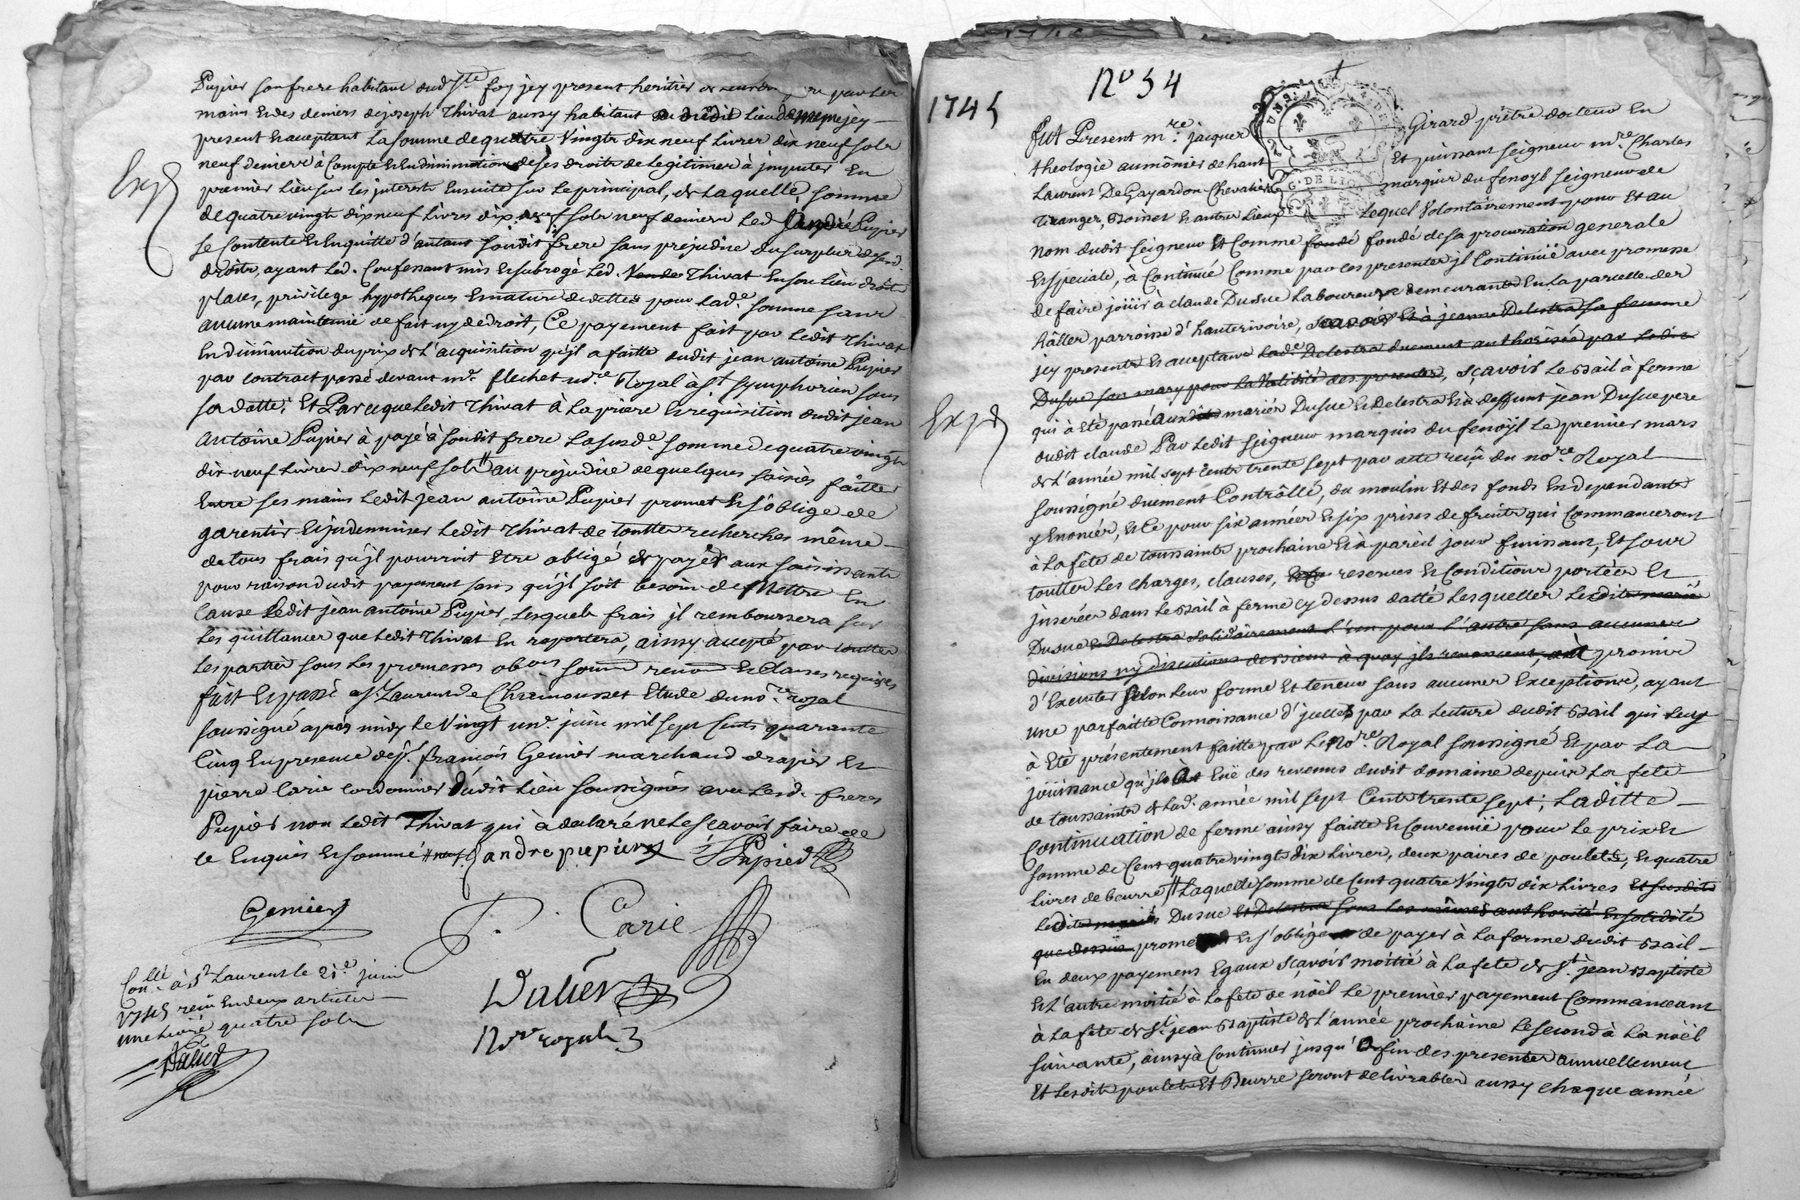 Pupier son frere habitant dud. Ste foy jcy present heritier
mains Et des deniers de joseph Thivat aussy habitant dudit Lieu de meme jcy
present Et acceptant La somme de quatre Vingt dix neuf Livres dix neuf sols
neuf deniers à Compte Et En diminution de ses droits de Legitimes à jmputer En
Exp.
premier Lieu sur Les jnterests Ensuitte sur Le principal, de Laquelle, somme
de quatre vingt dix neuf Livres dix neuf sols neuf deniers Led. André Pupier
se Contente Et En quitte d'autant soudit frere sans prejudice du surplus desd.
droits, ayant Led. Confessant mis Et subrogé Led. Thivat En son Lieu droits
places, privilege hypotheques Et nature de dettes pour Lade. somme sans
aucune maintenüe de fait ny de droit, Ce payement fait par Ledit Thivat
En diminution du prix de L'acquisition qu'jl a faitte dudit jean antoine Pupier
par contract passé devant mr. flechet nore. Royal à St. symphorien sous
sa datte; Et Parceque Ledit Thivat à La priere Et requisition dudit jean
antoine Pupier à payé à soudit frere La susde. somme de quatre vingt
dix neuf Livres dix neuf sols au prejudice de quelques saisies faittes
Entre ses mains Ledit jean antoine Pupier promet Et s'oblige de
garentir Et jndemniser Ledit Thivat de touttes recherches même
de tous frais qu'jl pourroit Etre obligé de payer aux saisissants
pour raison dudit payement sans qu'jl soit besoin de Mettre En
Cause Ledit jean antoine Pupier, Lesquels frais jl remboursera sur
Les quittances que Ledit Thivat En reportera, ainsy accepté par touttes
Les parties sous Les promesses obons. soum. renon. Et Clauses requises
fait Et passé a St. Laurent de Chamousset Etude du nore. royal
soussigné apres midy Le Vingt un. juin mil sept Cents quarante
Cinq En presence de Sr. françois Genier marchand drapier Et
pierre Carie cordonnier dudit Lieu soussignés avec Lesd. freres
Pupier non Ledit Thivat qui à declaré ne Le scavoir faire de
ce Enquis Et sommé andre pupier Pupied
Genier
P. Carie
Conllé. à St Laurent le 21e. juin
1745 reçu En deux articles
une Livre quatre sols
Valier
Nore royal
1745
No 54
Fut Present mre. Jacques Girard prêtre docteur En
theologie aumônier de haut Et puissant seigneur mre. Charles
Laurent De Gayardon Chevalier marquis du fenoyl seigneur de
Tiranges, Boisset Et autres Lieux Lequel Volontairement pour Et au
G. DE LION
nom dudit seigneur Et Comme fondé fondé de sa procuration generale
Et speciale, à Continué Comme par ces presentes jl Continüe avec promesse
de faire joüir a claude Dusue Laboureur demeurant En La parcelle des
Râller parroisse d'hauterivoire, scavoir Et à jeanne Delestra sa femme
jcy presents Et acceptant Lade. Delestra duement authorisée par Ledit
Dusue son mary pour La Validité des presentes, sçavoir Le Bail à ferme
Expd.
qui à été passé auxdits mariés Dusue Et Delestra Et à deffunt jean Dusue pere
dudit claude Par Ledit seigneur marquis du fenoÿl Le premier mars
de L'année mil sept Cents trente sept par acte reçu du nore. Royal
soussigné duement Contrôllé, du moulin Et des fonds En dependants
y Enoncés, Et Ce pour six années Et six prises de fruits qui Commanceront
à La fête de toussaints prochaine Et à pareil jour finissant, Et sous
touttes Les charges, clauses, reserves Et Conditions portées Et
jnserées dans Le Bail à ferme cy dessus datté Lesquelles Lesdits mariés
Dusue Et Delestra solidairement L'un pour L'autre sans aucunes
divisions ny discutions des siens à quoy jls renoncent, ont promis
d'Executer selon Leur forme Et teneur sans aucunes Exceptions, ayant
une parfaitte Connoissance d'jcelles par La Lecture dudit Bail qui Leur
à Eté présentement faitte par Le Nore. Royal soussigné Et par La
joüissance qu'jls ont Eüe des revenus dudit domaine depuis La fete
de toussaints de Lad. année mil sept Cents trente sept; Laditte
Continuation de ferme ainsy faitte Et Convenüe pour Le prix Et
somme de Cent quatre vingts dix Livres, deux paires de poulets, Et quatre
Livres de beurre Laquelle somme de Cent quatre Vingts dix Livres Et susdits
Lesdits mariés Dusue Et Delestra sous Les mêmes authorité Et solidité
que dessus promet Et s'oblige de payer à La forme dudit Bail
En deux payements Egaux sçavoir moitié à La fete de St. jean Baptiste
Et L'autre moitié à La fête de noël Le premier payement Commanceant
à La fête de St. jean Baptiste de L'année prochaine Le second à La noël
suivante, ainsy à Continuer jusqu'à fin des presentes annuellement
Et Lesdits poulets Et Beurre seront delivrables aussy chaque année